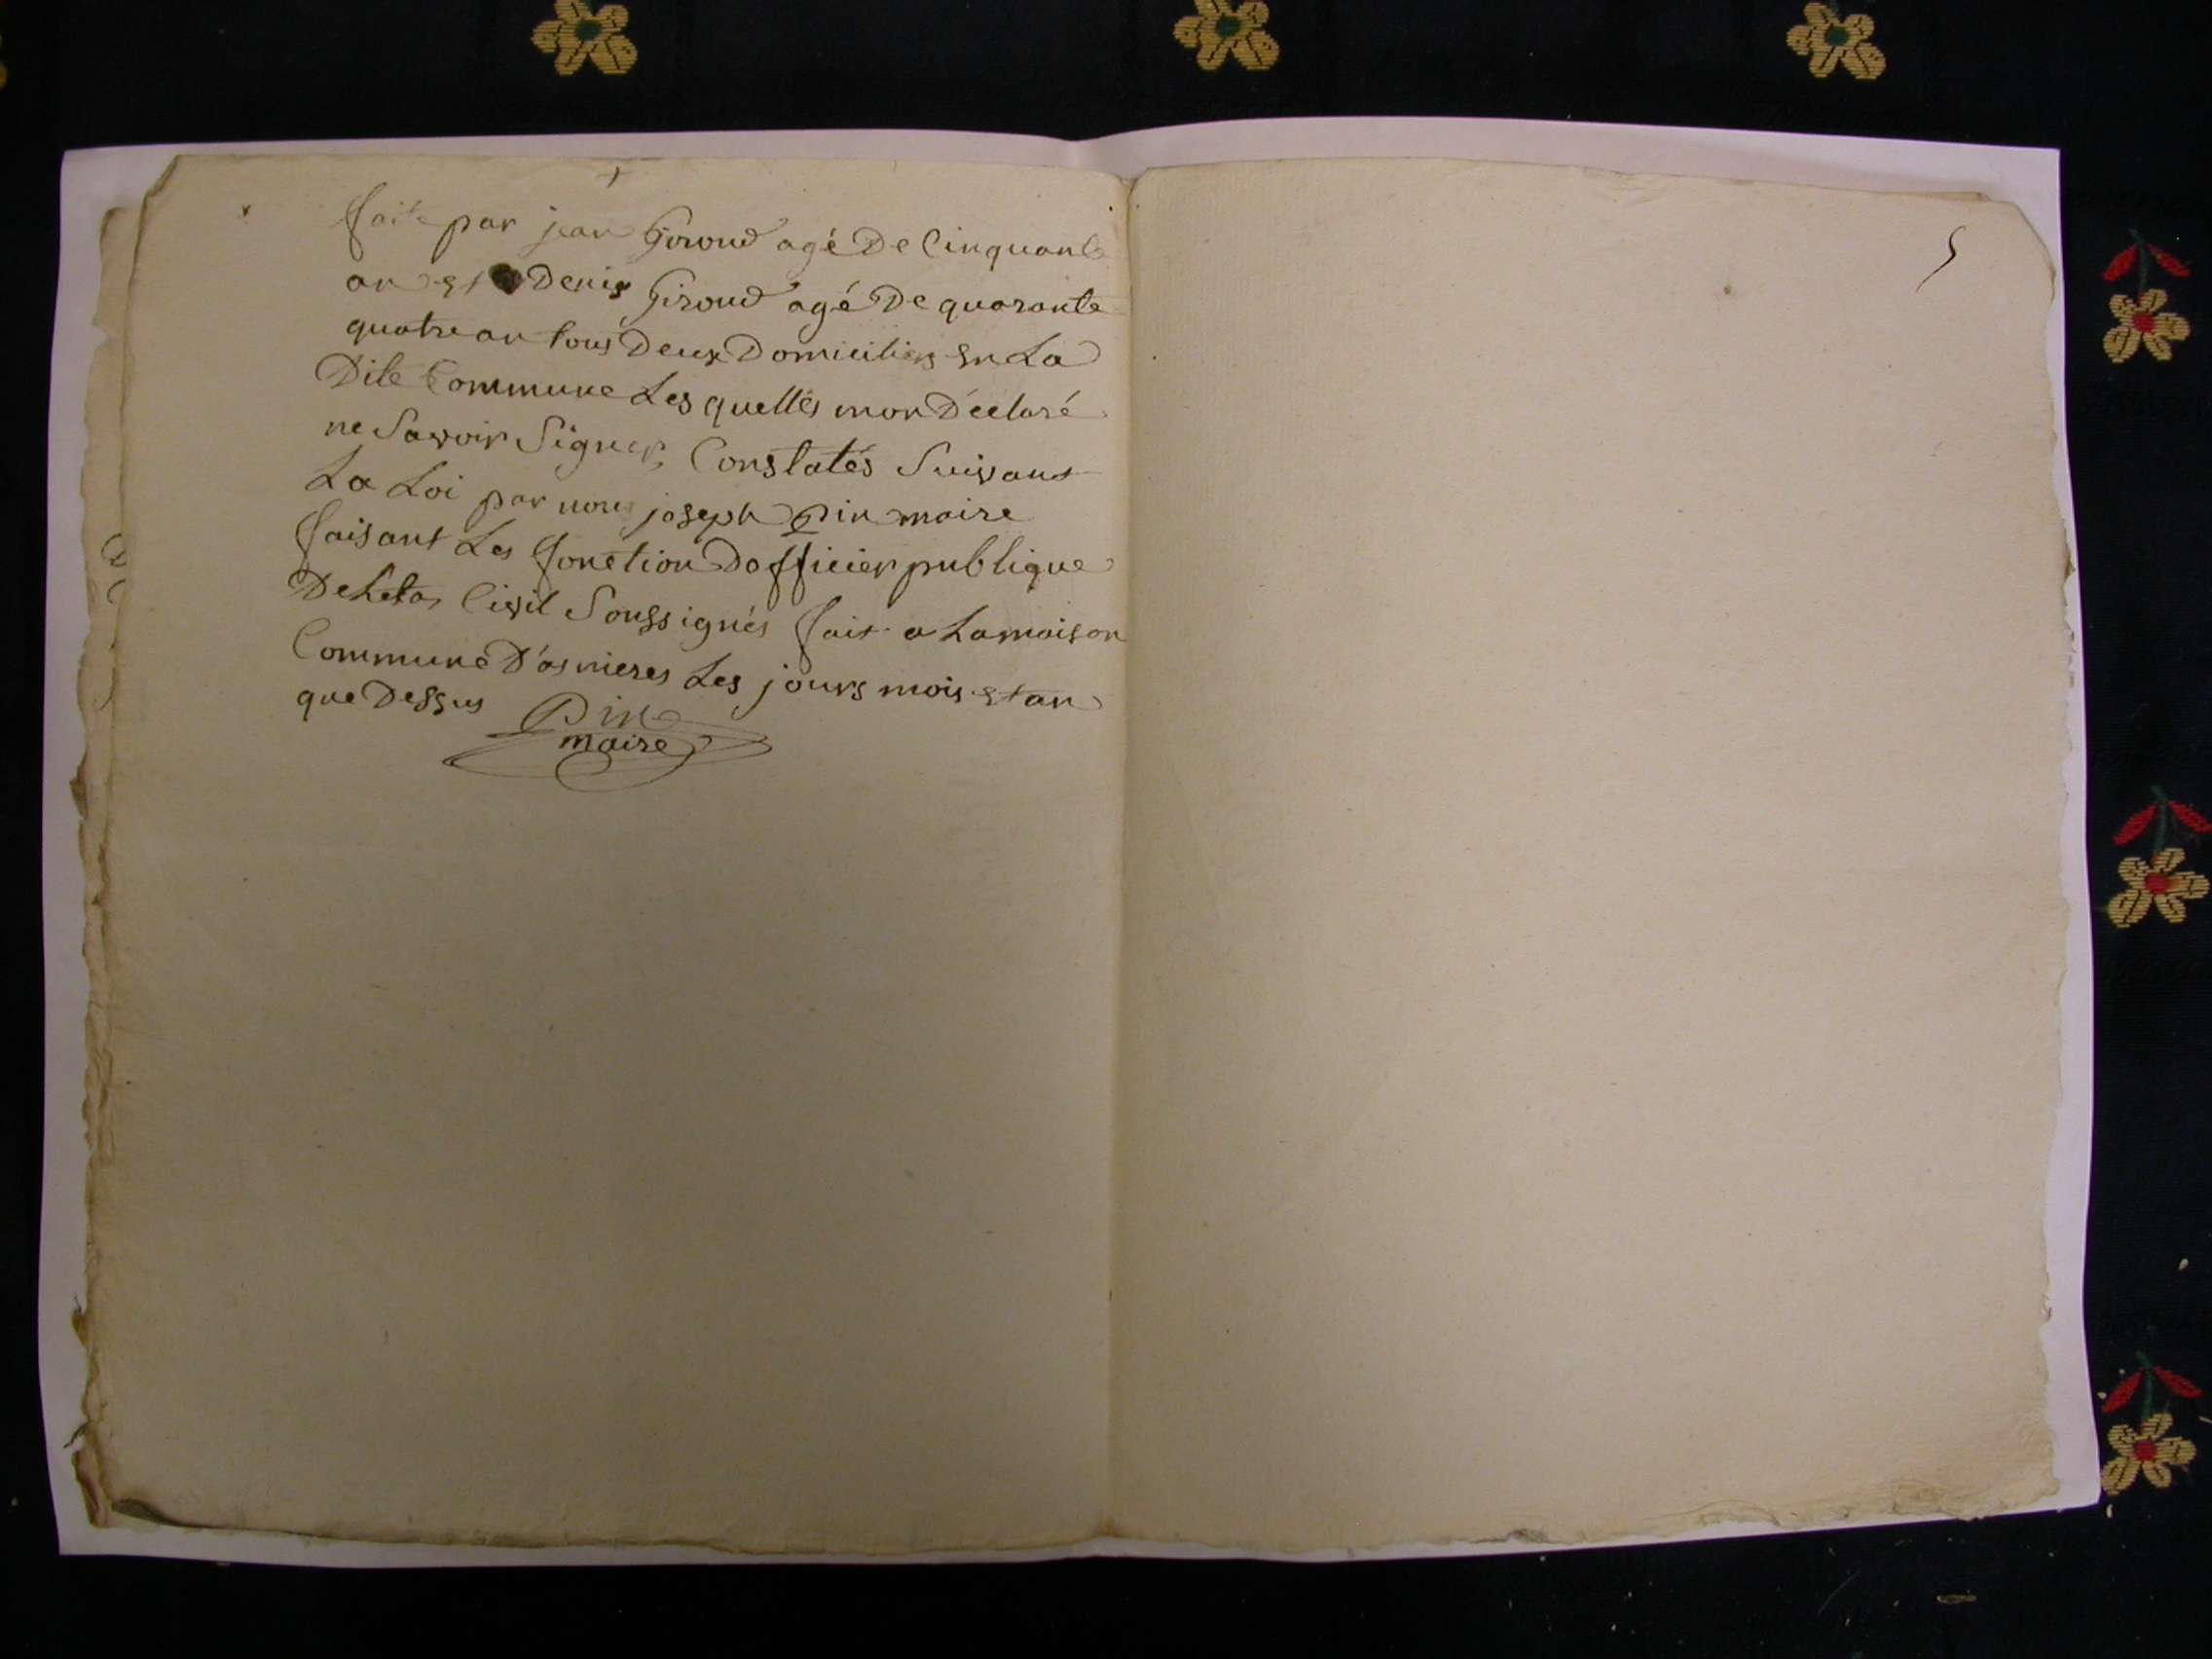 faite par jean Giroud agé De Cinquante
an et Denis Giroud agé De quarante
quatre an tous Deux Domiciliers en La
Dite Commune Les quelles mon Déclaré
ne Savoir Signer, Constatés Suivant
La Loi par nous joseph Pin maire
faisant Les fonction Dofficier publique
De Letat Civil Soussignés fait a Lamaison
Commune D'asnieres Les jours mois et an
que Dessus Pin
maire
5